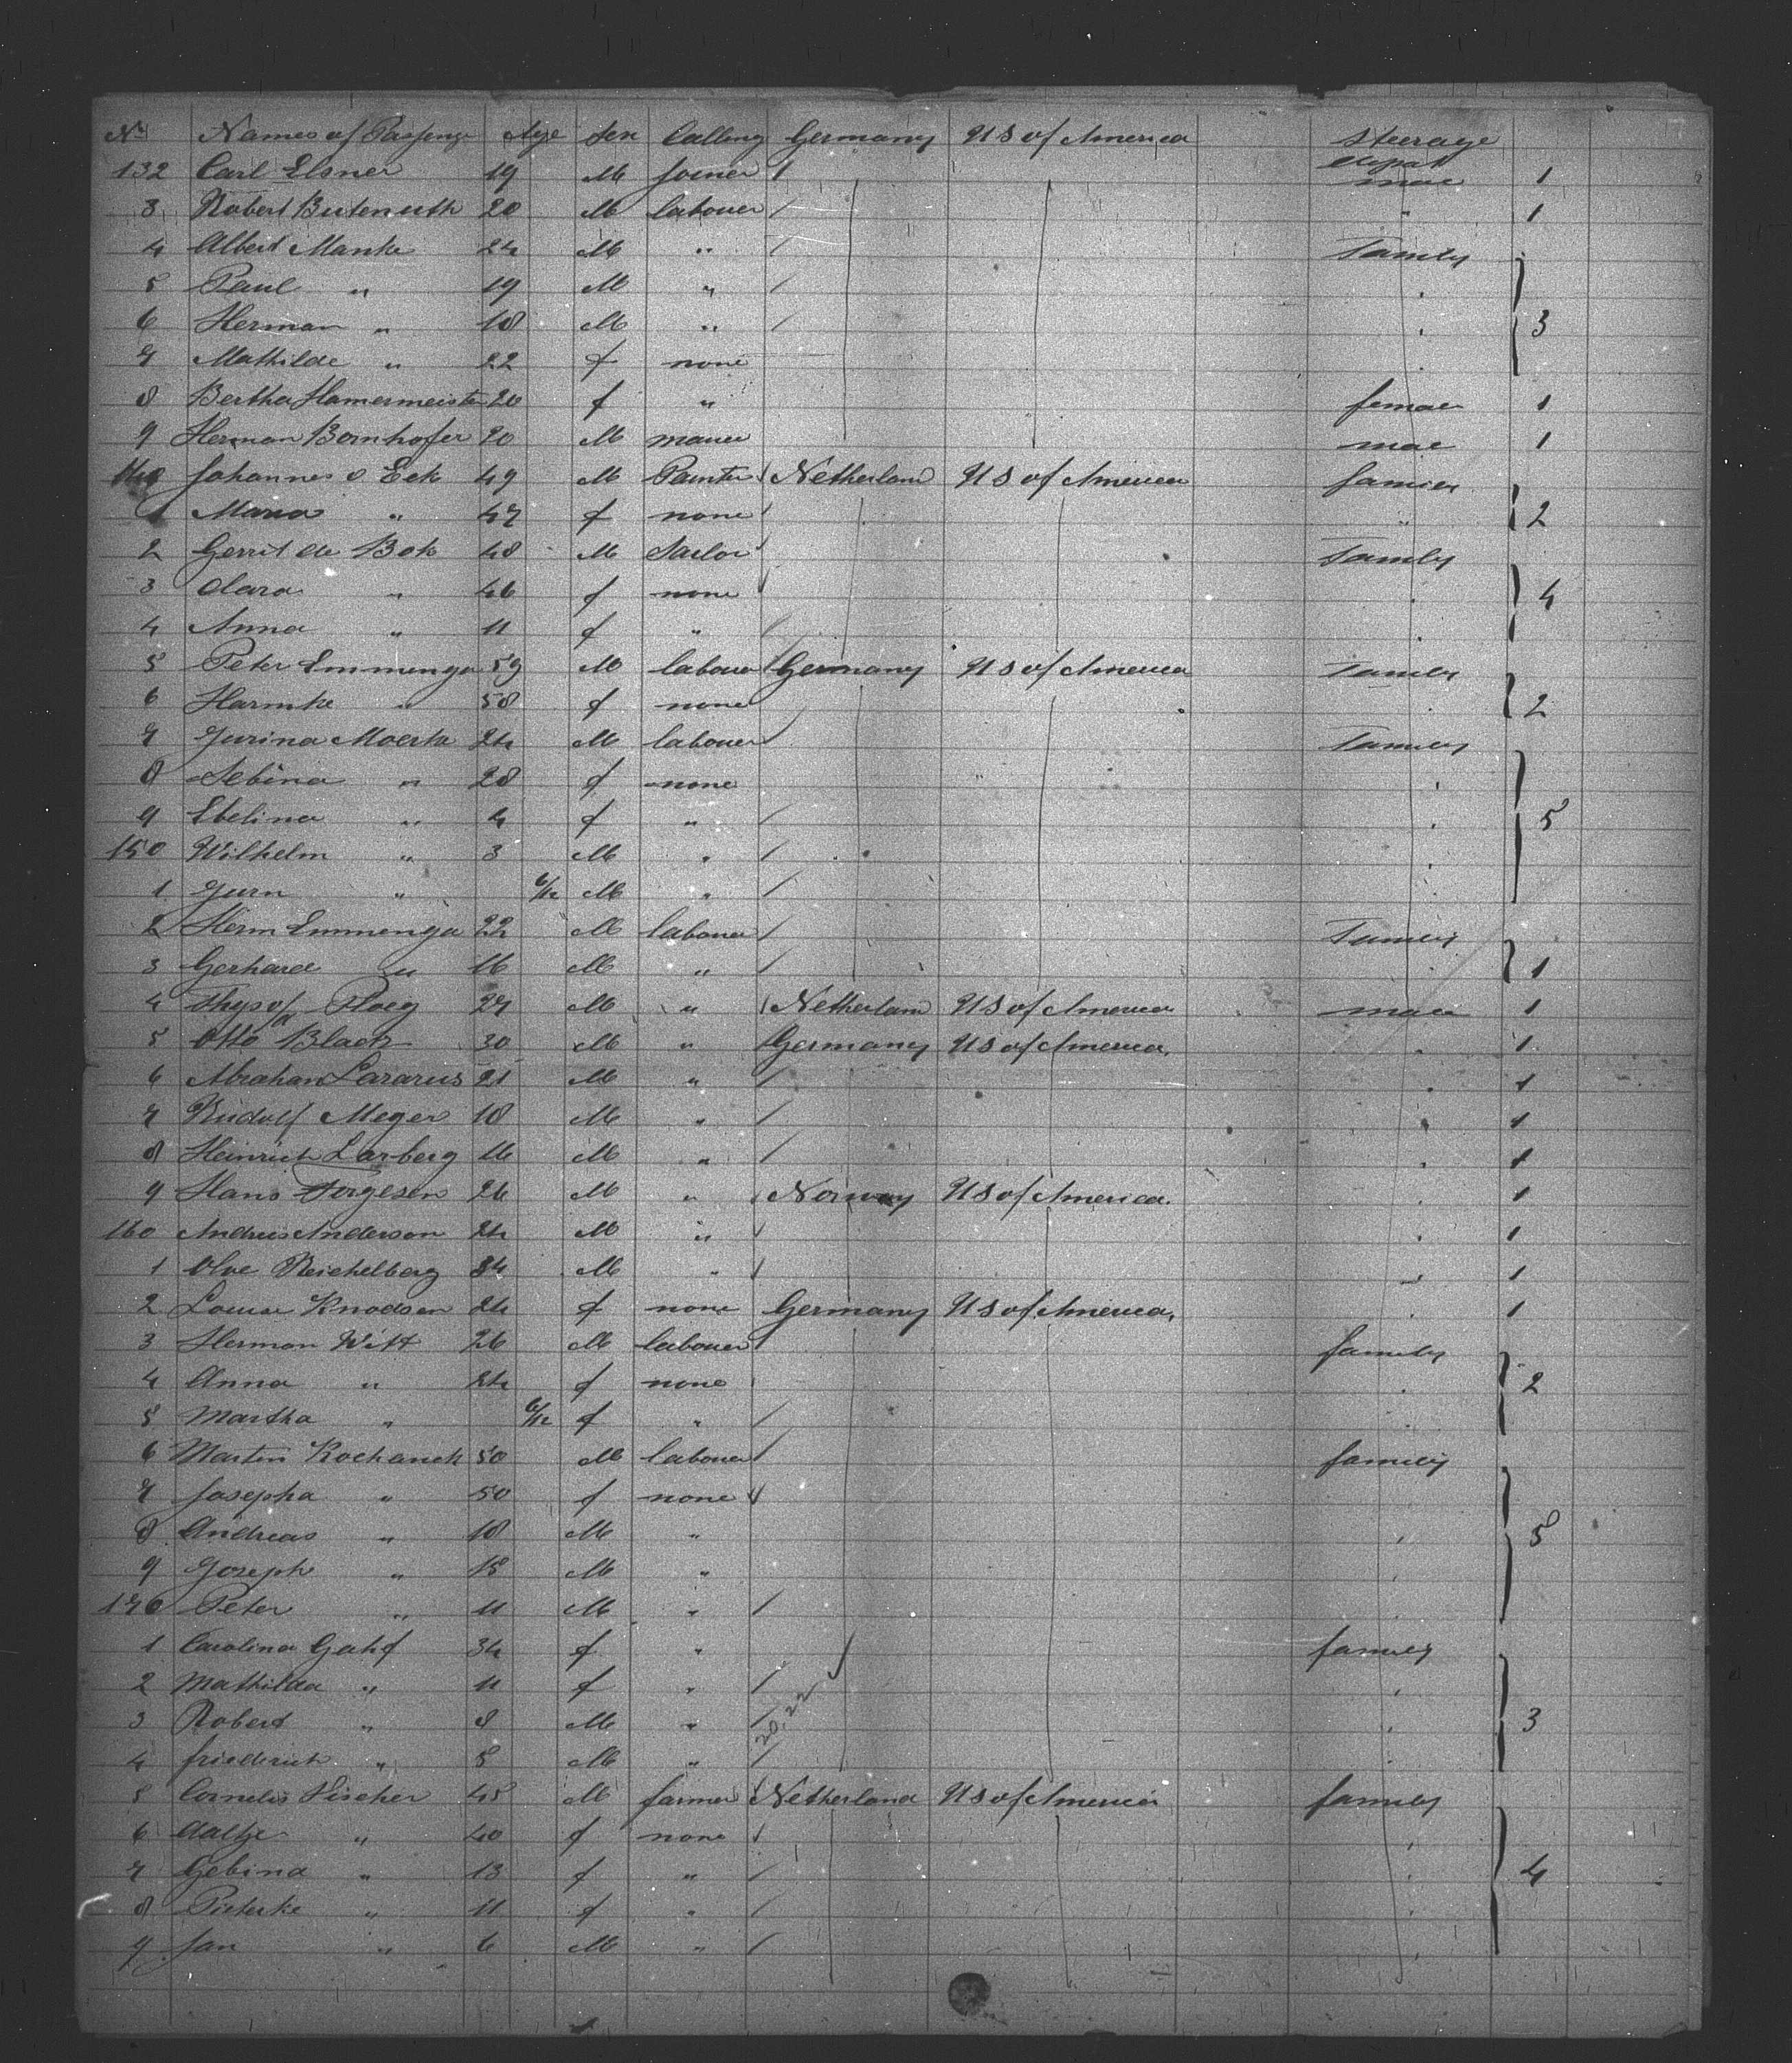 No Names of Passenge Age Sex Calling Germany US of America Steerage
132 Carl Elsner 19 M Joiner mae 1
3 Robert Butenuth 20 M labouer " 1
4 Albert Manke 24 M " Family
5 Paul " 19 M "
6 Herman " 18 M " 3
7 Mathilde " 22 f none
8 Bertha Hamermeister 20 f " femae 1
9 Herman Bornhofer 20 M mae 1
140 Johannes v Eek 49 M Painter Netherland US of America
1 Maria " 47 f none " 2
2 Gerrit de Bok 48 M Family
3 Clara " 46 f none 4
4 Anna " 11 f "
5 Peter Emmenga 59 M labouer Germany US of America Family
6 Harmke " 58 f none 2
7 Jurina 24 M labouer Family
8 Sebina " 28 f none
9 Ebelina " 4 f " 5
150 Wilhelm " 3 M "
1 Jurn " 6/12 M "
2 Herm Emmenga 22 M labouer Family
3 Gerhard " 16 M " 1
4 Ploeg 27 M " Netherland US of America mae 1
5 Otto Black 30 M " Germany US of America. 1
6 Abraham Lazarus 21 M " 1
7 Rudolf Meger 18 M " 1
8 Heinrich Larberg 16 M " 1
9 Hans Jorgesen 26 M " Norway US of America. 1
160 Andreis Anderson 24 M " 1
1 Olve Reichelberg 34 M " 1
2 Louise Knodsen 24 f none Germany US of America, 1
3 Herman Witt 26 M labouer family
4 Anna " 24 f none 2
5 Martha " 6/12 f "
6 Martin Kochanek 50 M labouer family
7 Josepha " 50 f none
8 Andreas " 18 M " 5
9 Joseph " 15 M "
170 Peter " 11 M "
1 Carolina 34 f " family
2 Mathilda " 11 f "
3 Robert " 8 M " 3
4 friederich " 5 M "
5 Cornelis Fischer 45 M farmer Netherland US of America family
6 Aaltje " 40 f none
7 Gebina " 13 f " 4
8 Pieterke " 11 f "
9 Jan " 6 M "